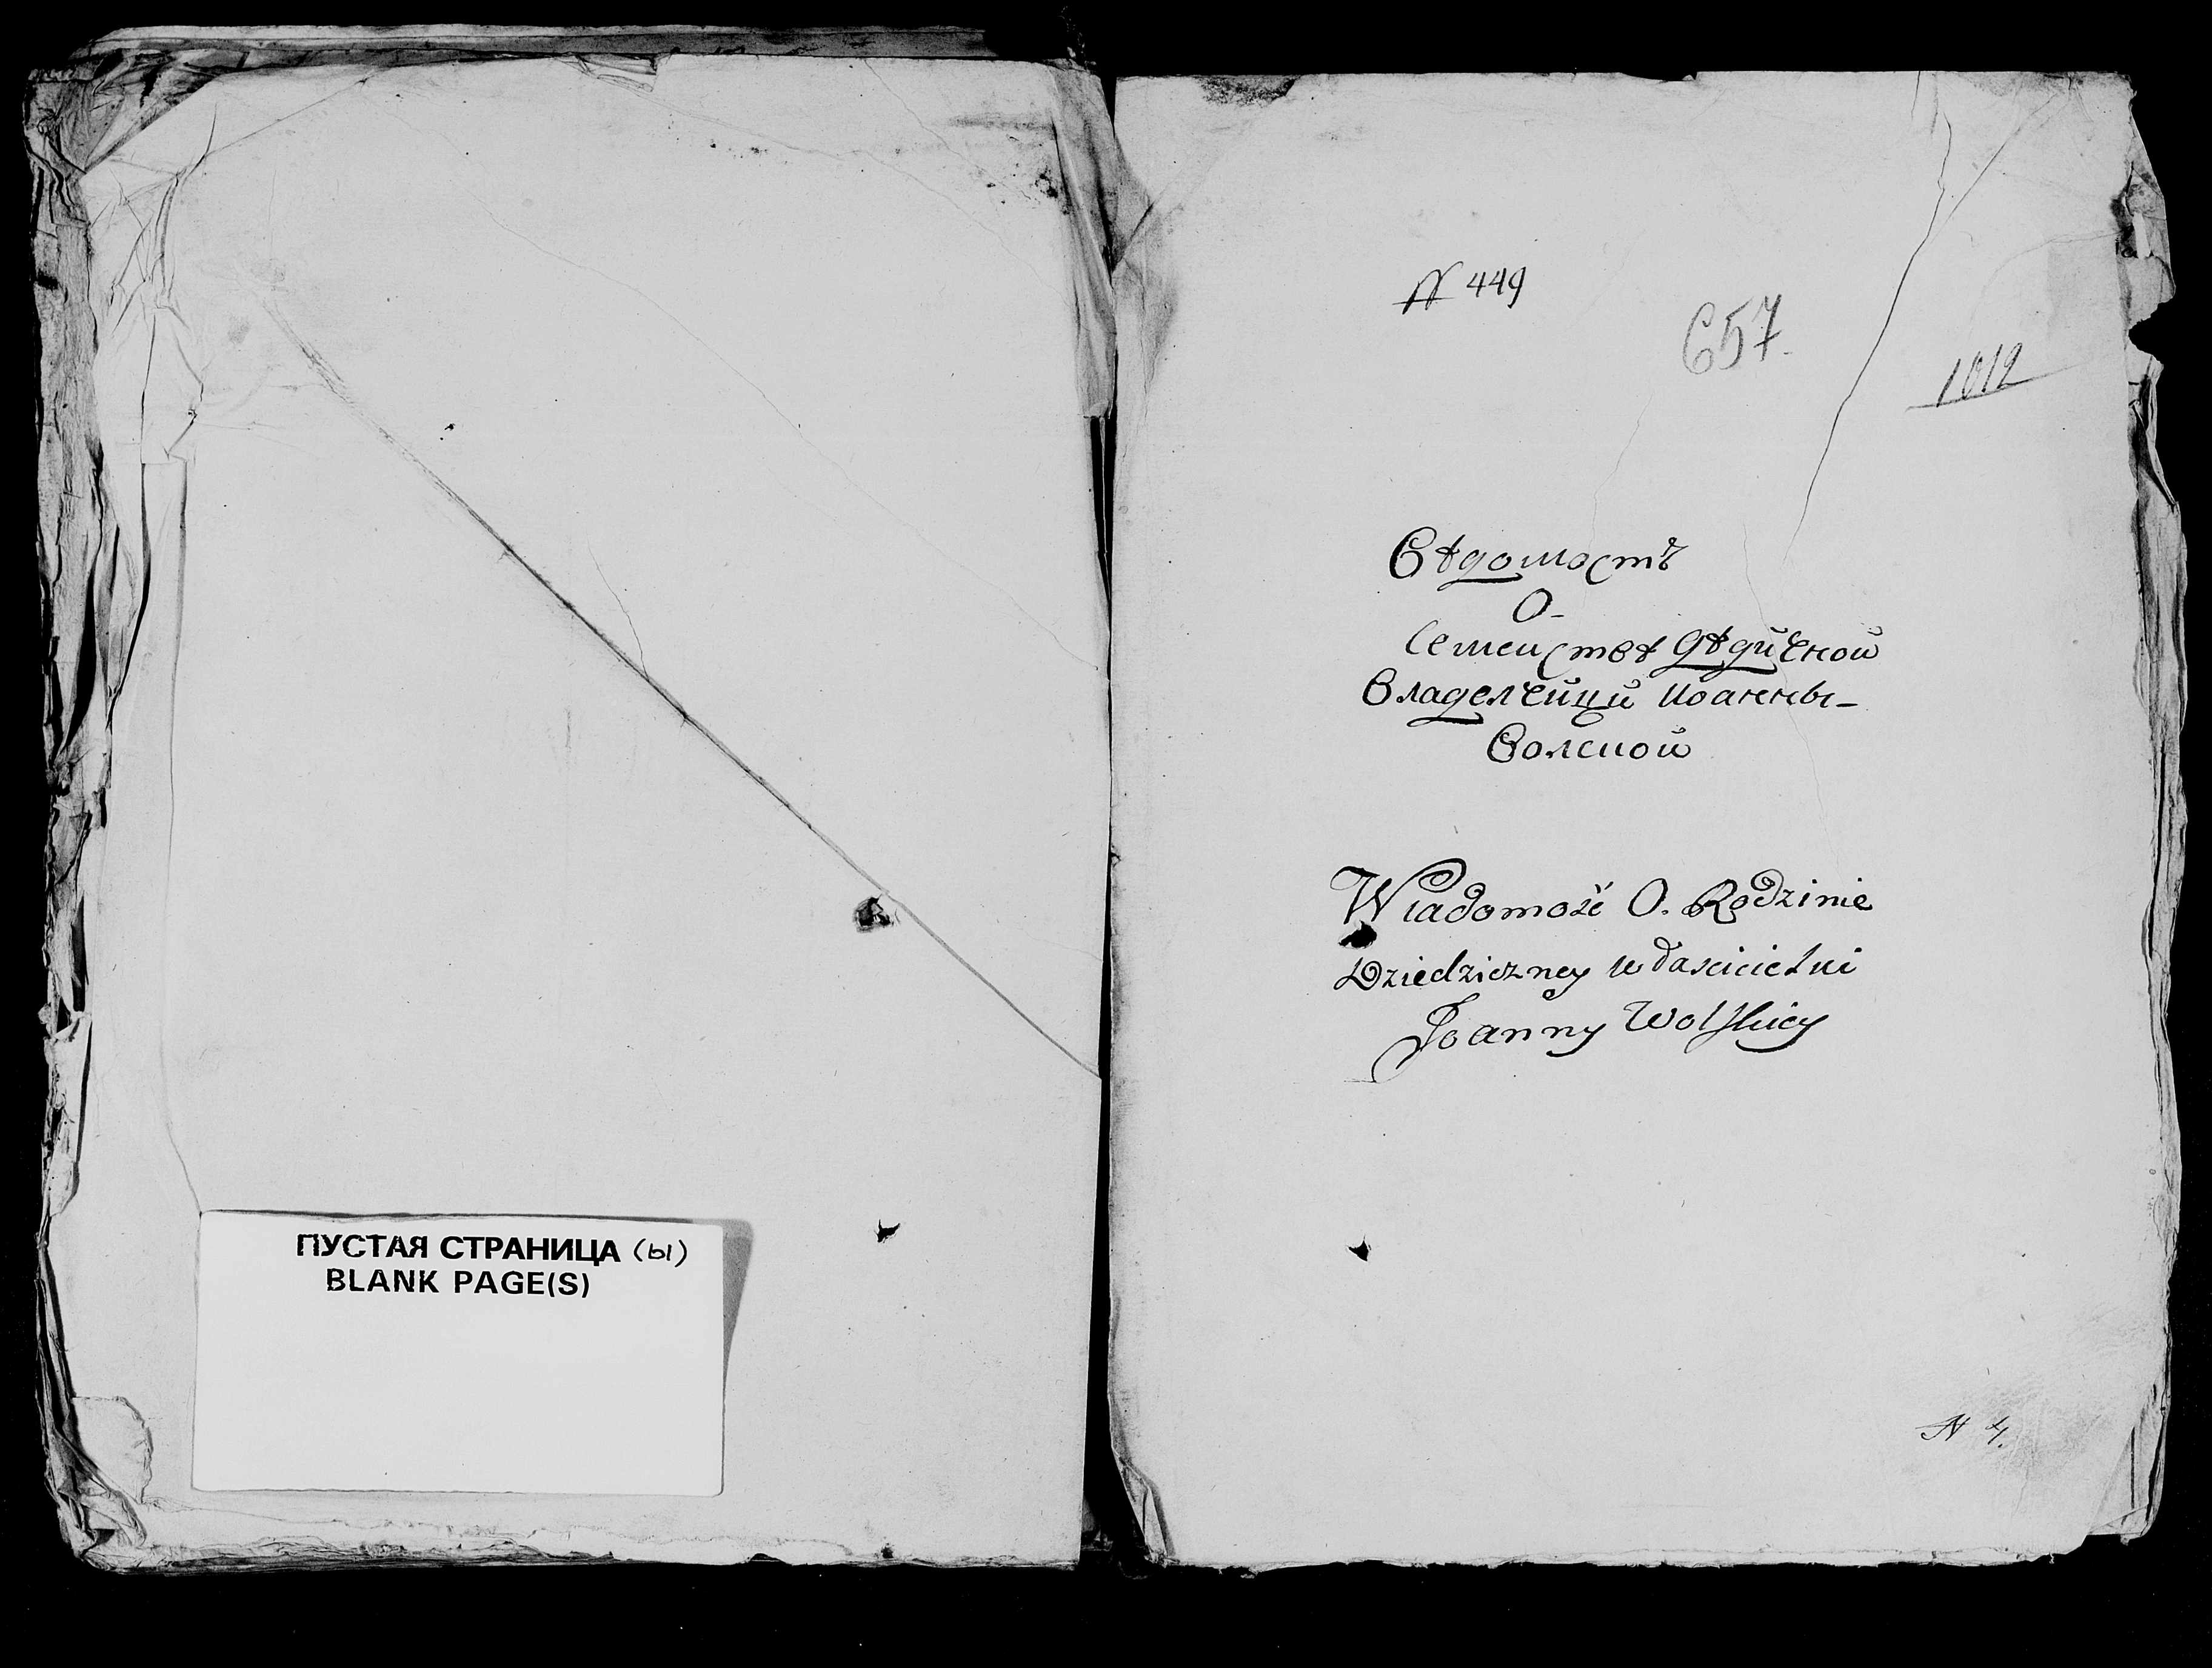 ПУСТАЯ СТРАНИЦА (ы)
BLANK PAGE(S)
N 449
657.
1012
Вѣдомость
О-
Семействѣ дѣдичной
Владелчицы Иоанны-
Волской
Wiadomość O. Rodzinie
Dziedziczney właścicielki
Joanny Wolskiey
N 4.